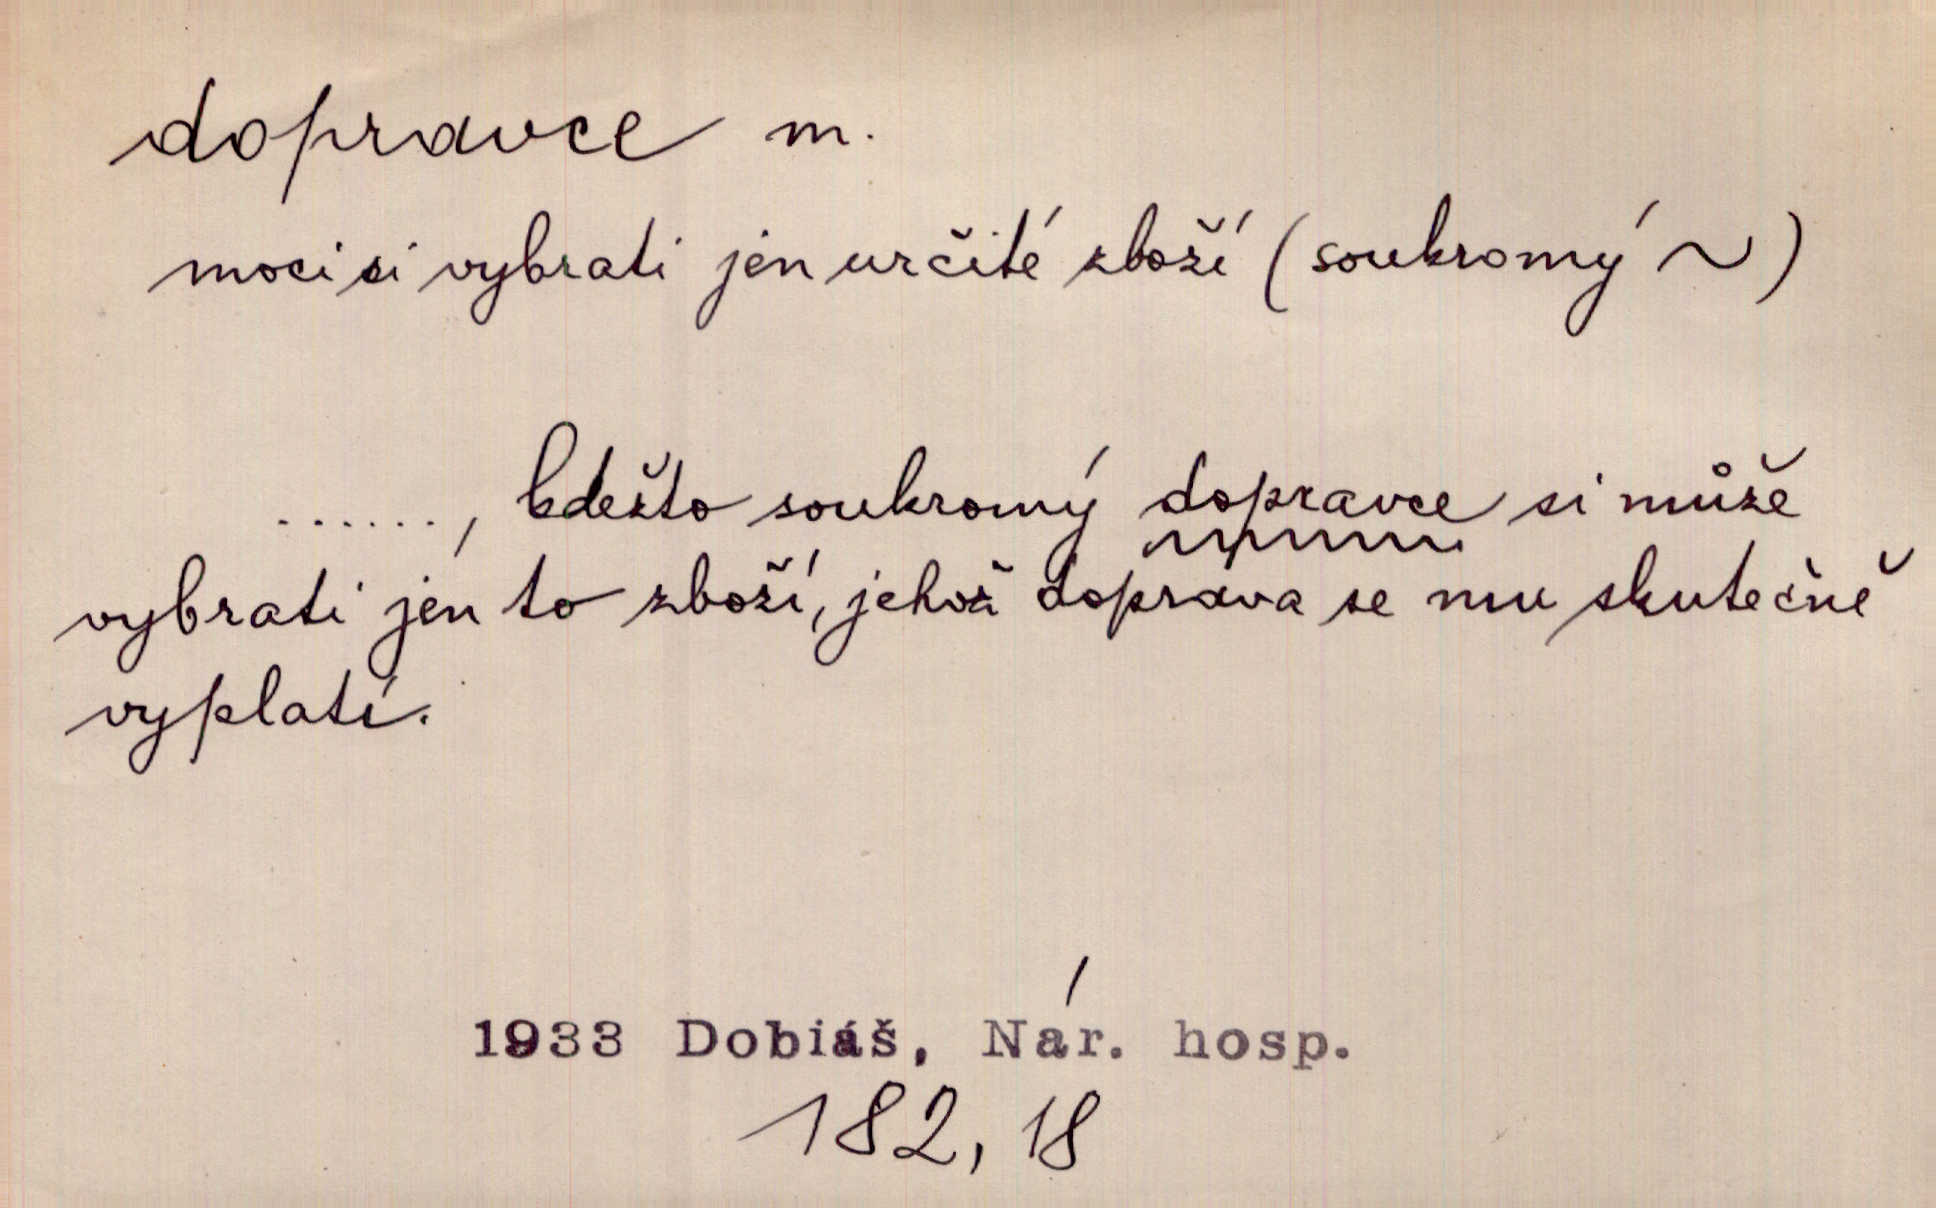 dopravce m.
moci si vybrati jen určité zboží (soukromý ~)
......, kdežto soukromý dopravce si může
vybrati jen to zboží, jehož doprava se mu skutečně
vyplatí.
1933 Dobiáš, Nár. hosp.
182, 18